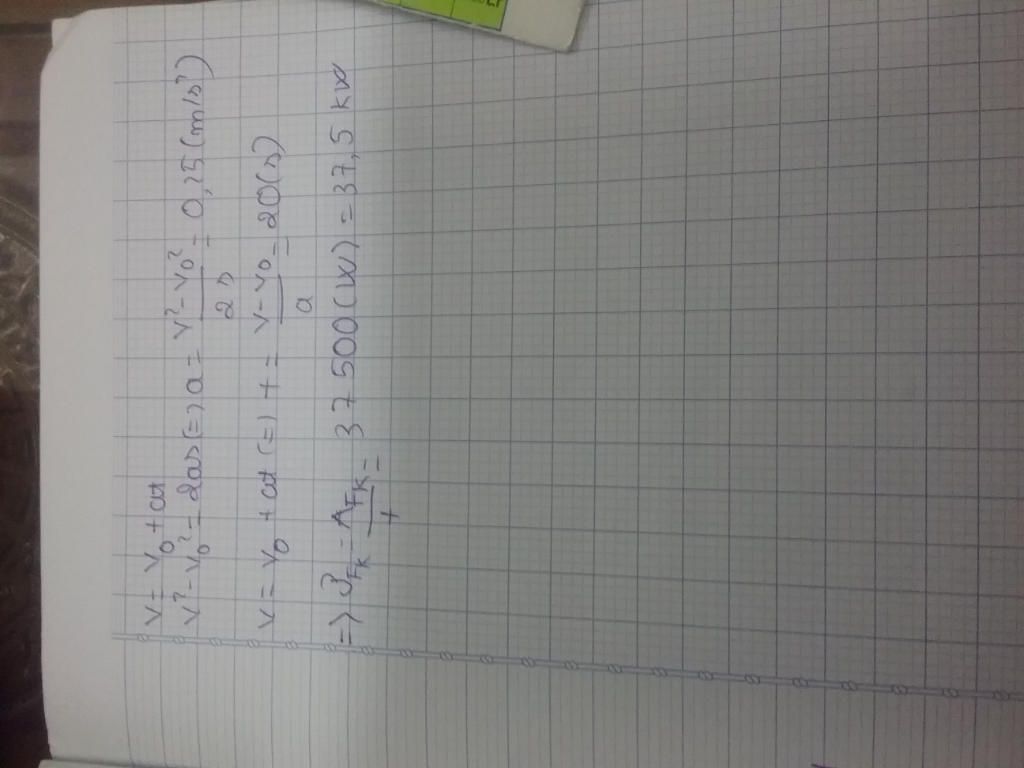 v = v₀ + at
v² - v₀² = 2as (=) a = (v² - v₀²)/2s = 0,25 (m/s²)
v = v₀ + at (=) t = (v - v₀)/a = 20 (s)
=> 𝒫_Fₖ = A_Fₖ/t = 37 500 (W) = 37,5 kW